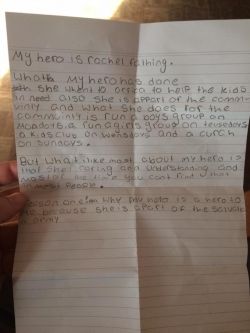 My hero is rachel
What my hero has done
she went to africa to help the kids
in need also she is apart of the commu-
unity and what she does for the
community is run a boys group on
Mondays a run a girls group on
a kids club on and a curch
on sundays.
But what i like most about my hero is
that she caring and understanding and
most of the time you cant find that
in most people.
why my hero is a hero to
me because she is apart of the
army